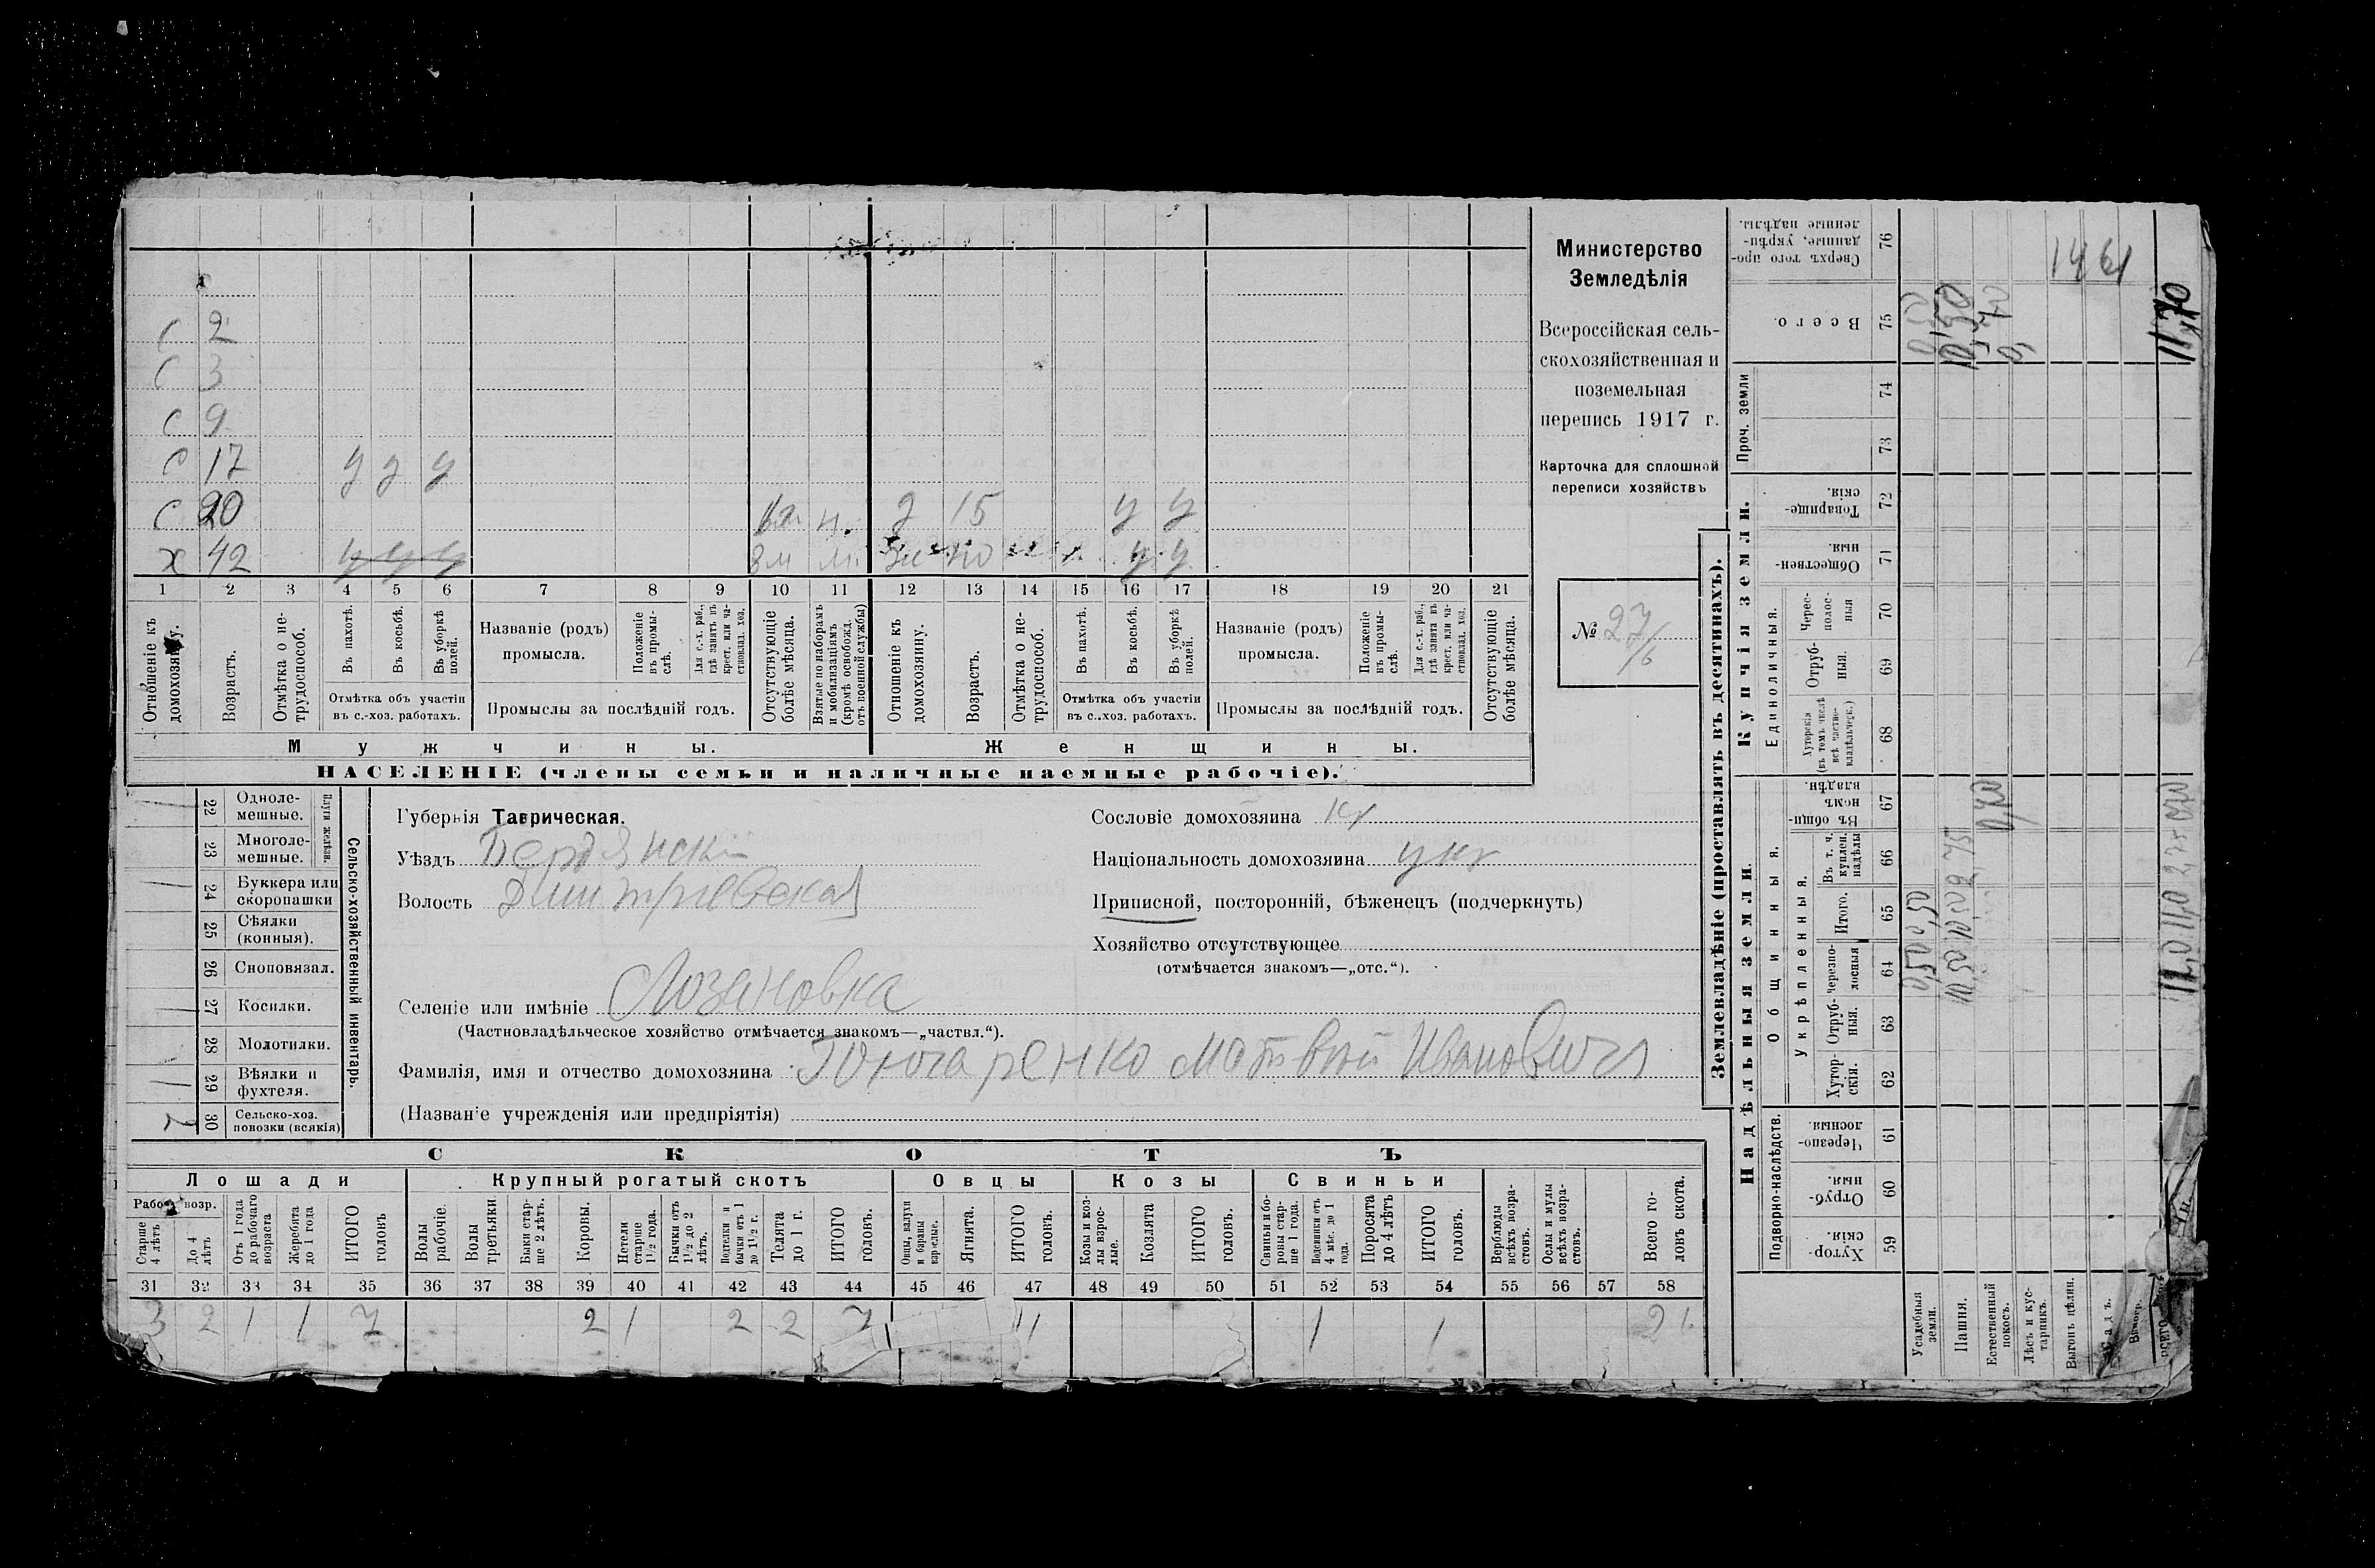 С 2
С 3
С 9
С 17 у у у
С 20 м. д 15 у у
х 42 у у у 3м м. жн 40 у у
1 2 3 4 5 6 7 8 9 10 11 12 13 14 15 16 17 18 19 20 21
Отношеніе къ домохозяину.
Возрастъ.
Отмѣтка о нетрудоспособ.
Въ пахотѣ.
Въ косьбѣ.
Въ уборкѣ полей.
Отмѣтка объ участіи въ с.-хоз. работахъ.
Названіе (родъ) промысла.
Положеніе въ промыслѣ.
Для с.-х. раб., гдѣ занятъ въ крест. или частновлад. хоз.
Промыслы за послѣдній годъ.
Отсутствующіе болѣе мѣсяца.
Взятые по наборамъ и мобилизаціямъ (кромѣ освобожд. отъ военной службы)
Отношеніе къ домохозяину.
Возрастъ.
Отмѣтка о нетрудоспособ.
Въ пахотѣ.
Въ косьбѣ.
Въ уборкѣ полей.
Отмѣтка объ участіи въ с.-хоз. работахъ.
Названіе (родъ) промысла.
Положеніе въ промыслѣ.
Для с.-х. раб., гдѣ занята въ крест. или частновлад. хоз.
Промыслы за послѣдній годъ.
Отсутствующіе болѣе мѣсяца.
Мужчины.
Женщины.
НАСЕЛЕНІЕ (члены семьи и наличные наемные рабочіе).
Министерство
Земледѣлія
Всероссійская сель-
скохозяйственная и
поземельная
перепись 1917 г.
Карточка для сплошной
переписи хозяйствъ
№ 27/6
22 Одноле-мешные. 1
23 Многоле-мешные.
Плуги желѣзн.
24 Буккера или скоропашки 1
25 Сѣялки (конныя).
26 Сноповязал.
27 Косилки. 1
28 Молотилки.
29 Вѣялки и фухтеля. 1
30 Сельско-хоз. повозки (всякія)
Сельско-хозяйственный инвентарь.
Губернія Таврическая.
Уѣздъ Бердянскій
Волость Дмитріевская
Селеніе или имѣніе Лозановка
(Частновладѣльческое хозяйство отмѣчается знакомъ—„частвл.“).
Фамилія, имя и отчество домохозяина Гончаренко Матвѣй Ивановичъ
(Названіе учрежденія или предпріятія)
Сословіе домохозяина кр
Національность домохозяина укр
Приписной, посторонній, бѣженецъ (подчеркнуть)
Хозяйство отсутствующее
(отмѣчается знакомъ—„отс.“).
СКОТЪ
Лошади
Крупный рогатый скотъ
Овцы
Козы
Свиньи
Рабоч. возр.
Старше 4 лѣтъ
До 4 лѣтъ
Отъ 1 года до рабочаго возраста
Жеребята до 1 года
ИТОГО головъ
Волы рабочіе.
Волы третьяки
Быки старше 2 лѣтъ.
Коровы.
Нетели старше 1½ года.
Бычки отъ 1½ до 2 лѣтъ.
Подтелки и бычки отъ 1 до 1½ г.
Телята до 1 г.
ИТОГО головъ.
Овцы, валухи и бараны взрослые.
Ягнята.
ИТОГО головъ.
Козы и козлы взрослые.
Козлята
ИТОГО головъ.
Свиньи и боровы старше 1 года.
Подсвинки отъ 4 мѣс. до 1 года.
Поросята до 4 лѣтъ
ИТОГО головъ.
Верблюды всѣхъ возрастовъ.
Ослы и мулы всѣхъ возрастовъ.
Всего головъ скота.
31 32 33 34 35 36 37 38 39 40 41 42 43 44 45 46 47 48 49 50 51 52 53 54 55 56 57 58
3 2 1 1 7 2 1 2 2 7 1 1
Землевладѣніе (проставлять въ десятинахъ).
Надѣльныя земли.
Купчія земли.
Проч. земли
Подворно-наслѣдств.
Общинныя.
Укрѣпленныя.
Единоличныя.
Хуторскія.
Отрубныя.
Черезполосныя.
Хуторскія.
Отрубныя.
Черезполосныя
Итого.
Въ т. ч. куплен. надѣлы
Въ общинномъ владѣн.
Хуторскія (въ томъ числѣ всѣ частновладѣльческ.)
Отрубныя.
Череcполосныя
Общественныя.
Товарищескія.
Всего.
Сверхъ того проданные, укрѣпленные надѣлы.
59 60 61 62 63 64 65 66 67 68 69 70 71 72 73 74 75 76
Усадебныя земли. 0,50 0,50 0,50
Пашня. 10,50
Естественный покосъ.
Лѣсъ и кустарникъ.
Выгонъ цѣлин.
Садъ.
Виногр.
ВСЕГО
1461
11,70